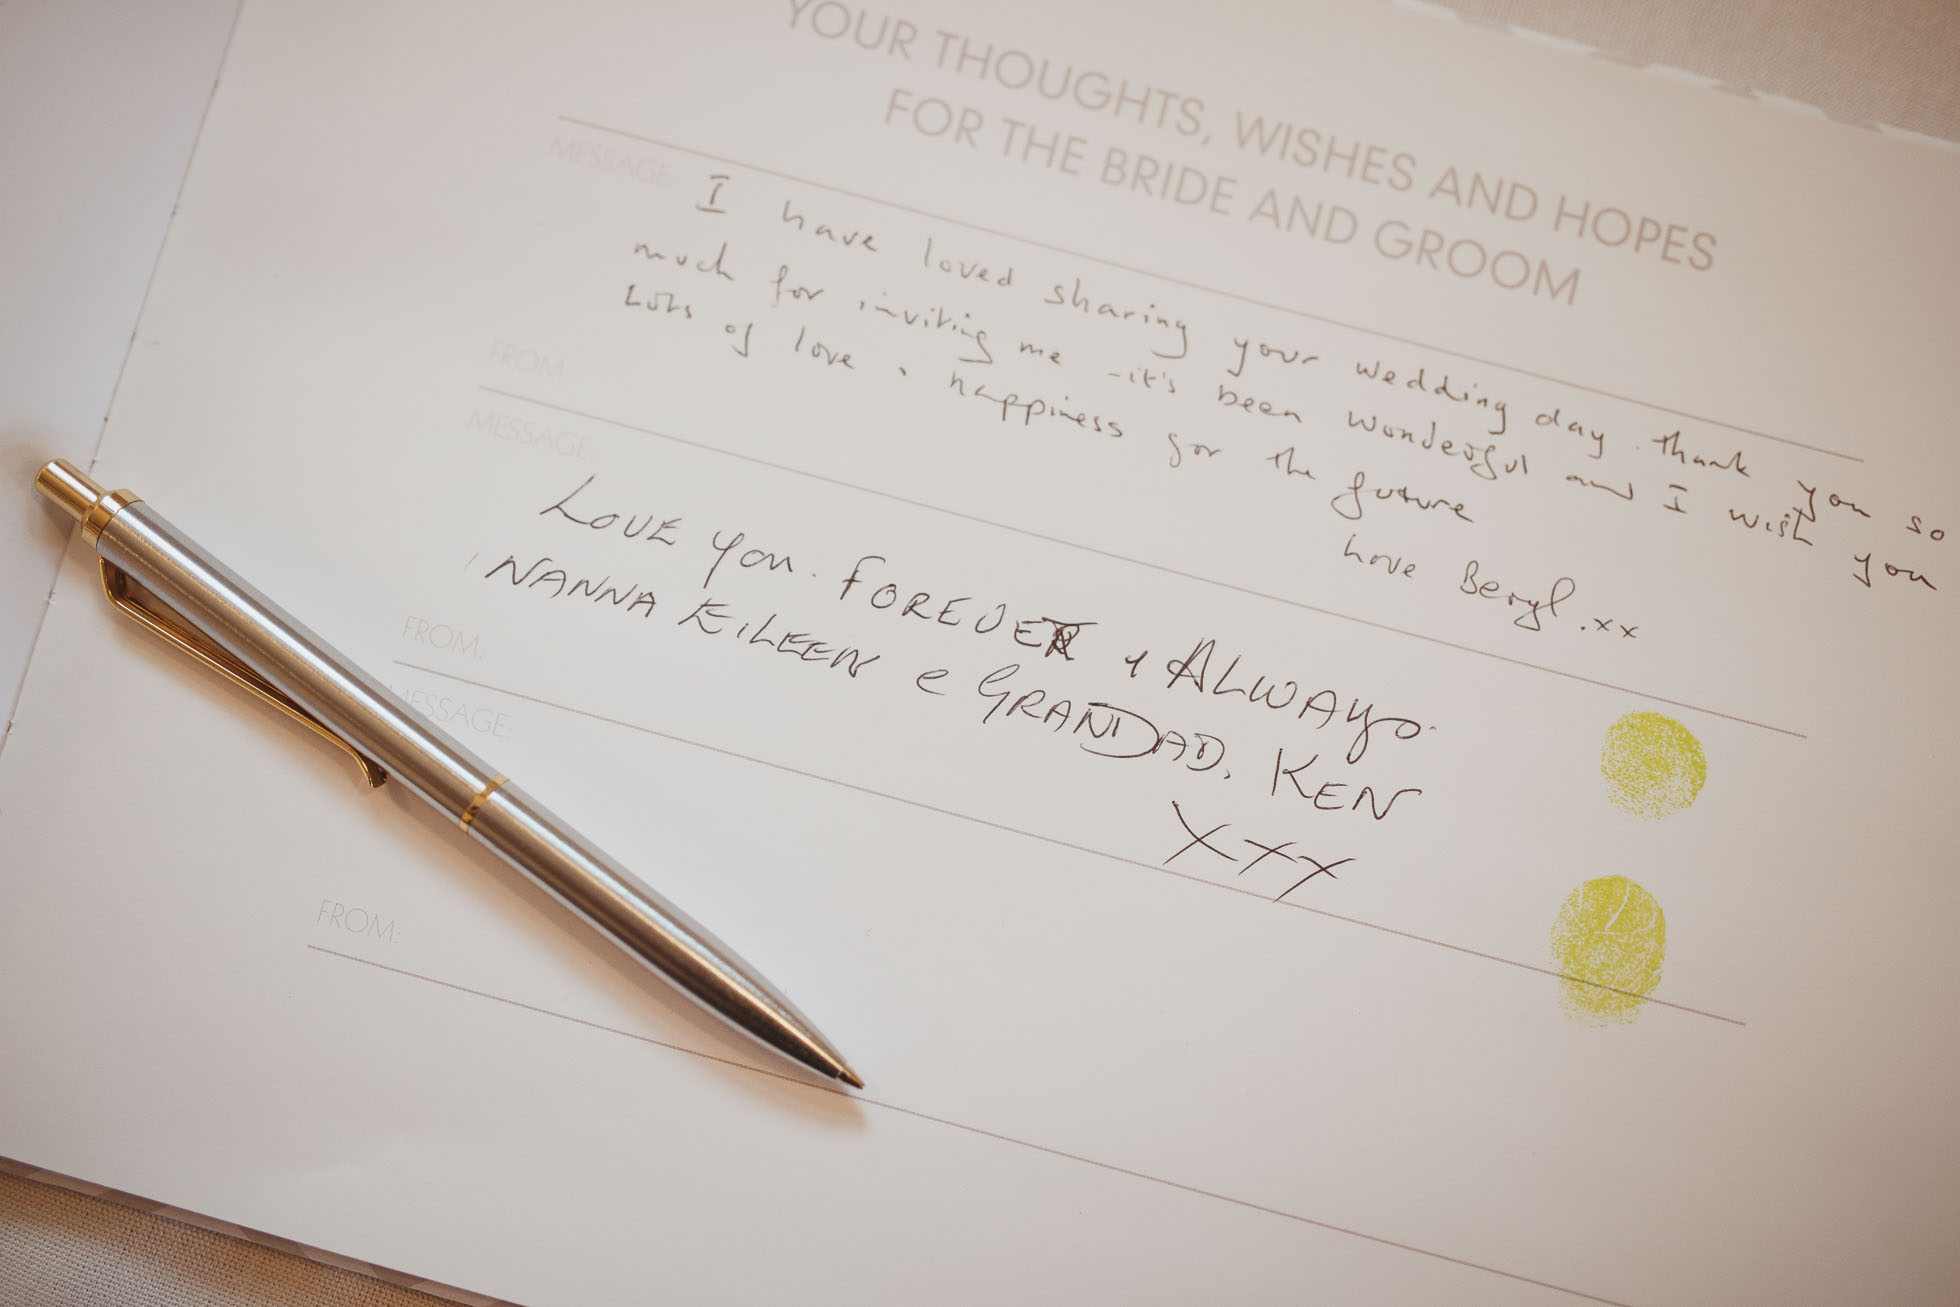 YOUR THOUGHTS, WISHES AND HOPES
FOR THE BRIDE AND GROOM
MESSAGE:
I have loved sharing your wedding day. Thank you so
much for inviting me - it's been wonderful and I wish you
Lots of love + happiness for the future
Love Beryl.xx
FROM:
MESSAGE:
LOVE you. FOREVER + ALWAYS.
NANNA EILEEN e GRANDAD. KEN
XXX
FROM:
MESSAGE:
FROM: